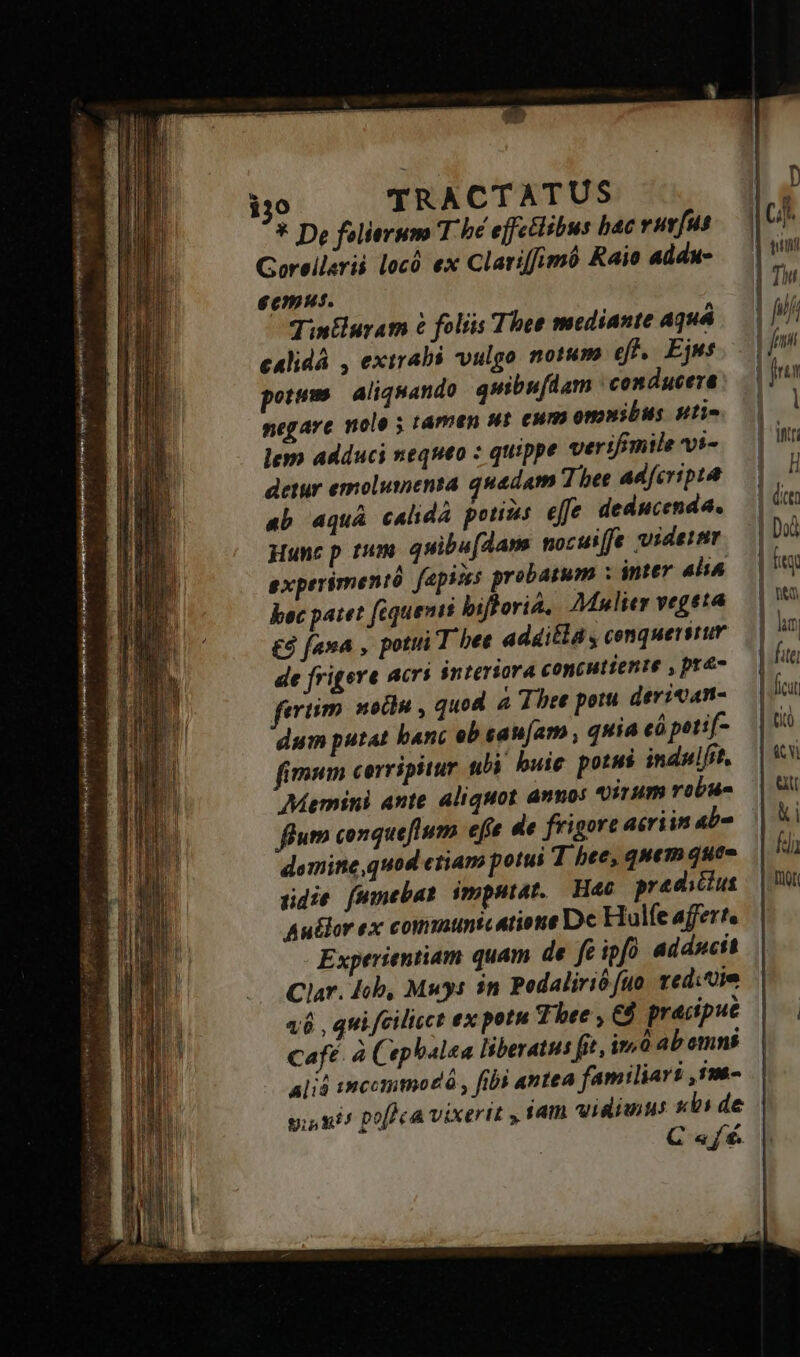 130 TRACTATUS
* De folierum Thé effectibus hac rursus
Corollarii locô ex Clarissimô Raio addu-
cemus.
Tincturam è foliis Thee mediante aquâ
calidâ, extrahi vulgo notum est. Ejus
potum aliquando quibusdam conducere
negare nolo; tamen ut eum omnibus uti-
lem adduci nequeo: quippe verisimile vi-
detur emolumenta quædam Thee adscripta
ab aquâ calidâ potiùs esse deducenda.
Hunc p tum quibusdam nocuisse videtur
experimentô sæpiùs probatum: inter alia
hoc patet sequenti historiâ, Mulier vegeta
& sana, potui Thee addicta, conqueritur
de frigore acri interiora concutiente, præ-
sertim noctu, quod à Thee potu derivan-
dum putat hanc ob causam, quia eò potis-
simum corripitur ubi huic potui indulsit.
Memini ante aliquot annos virum robu-
stum conquestum esse de frigore acri in ab-
domine, quod etiam potui Thee, quem quo-
tidie sumebat imputat. Hæc prædictus
Auctor ex communicatione De Hulse affert.
Experientiam quam de se ipsô adducit
Clar. Joh, Muys in Podaliriô suo redivi-
vô, qui scilicet ex potu Thee, & præcipuè
Café à Cephalæa liberatus sit, imò ab omni
aliâ incommodô, sibi antea familiari, im-
munis postea vixerit, iam vidimus ubi de
Café